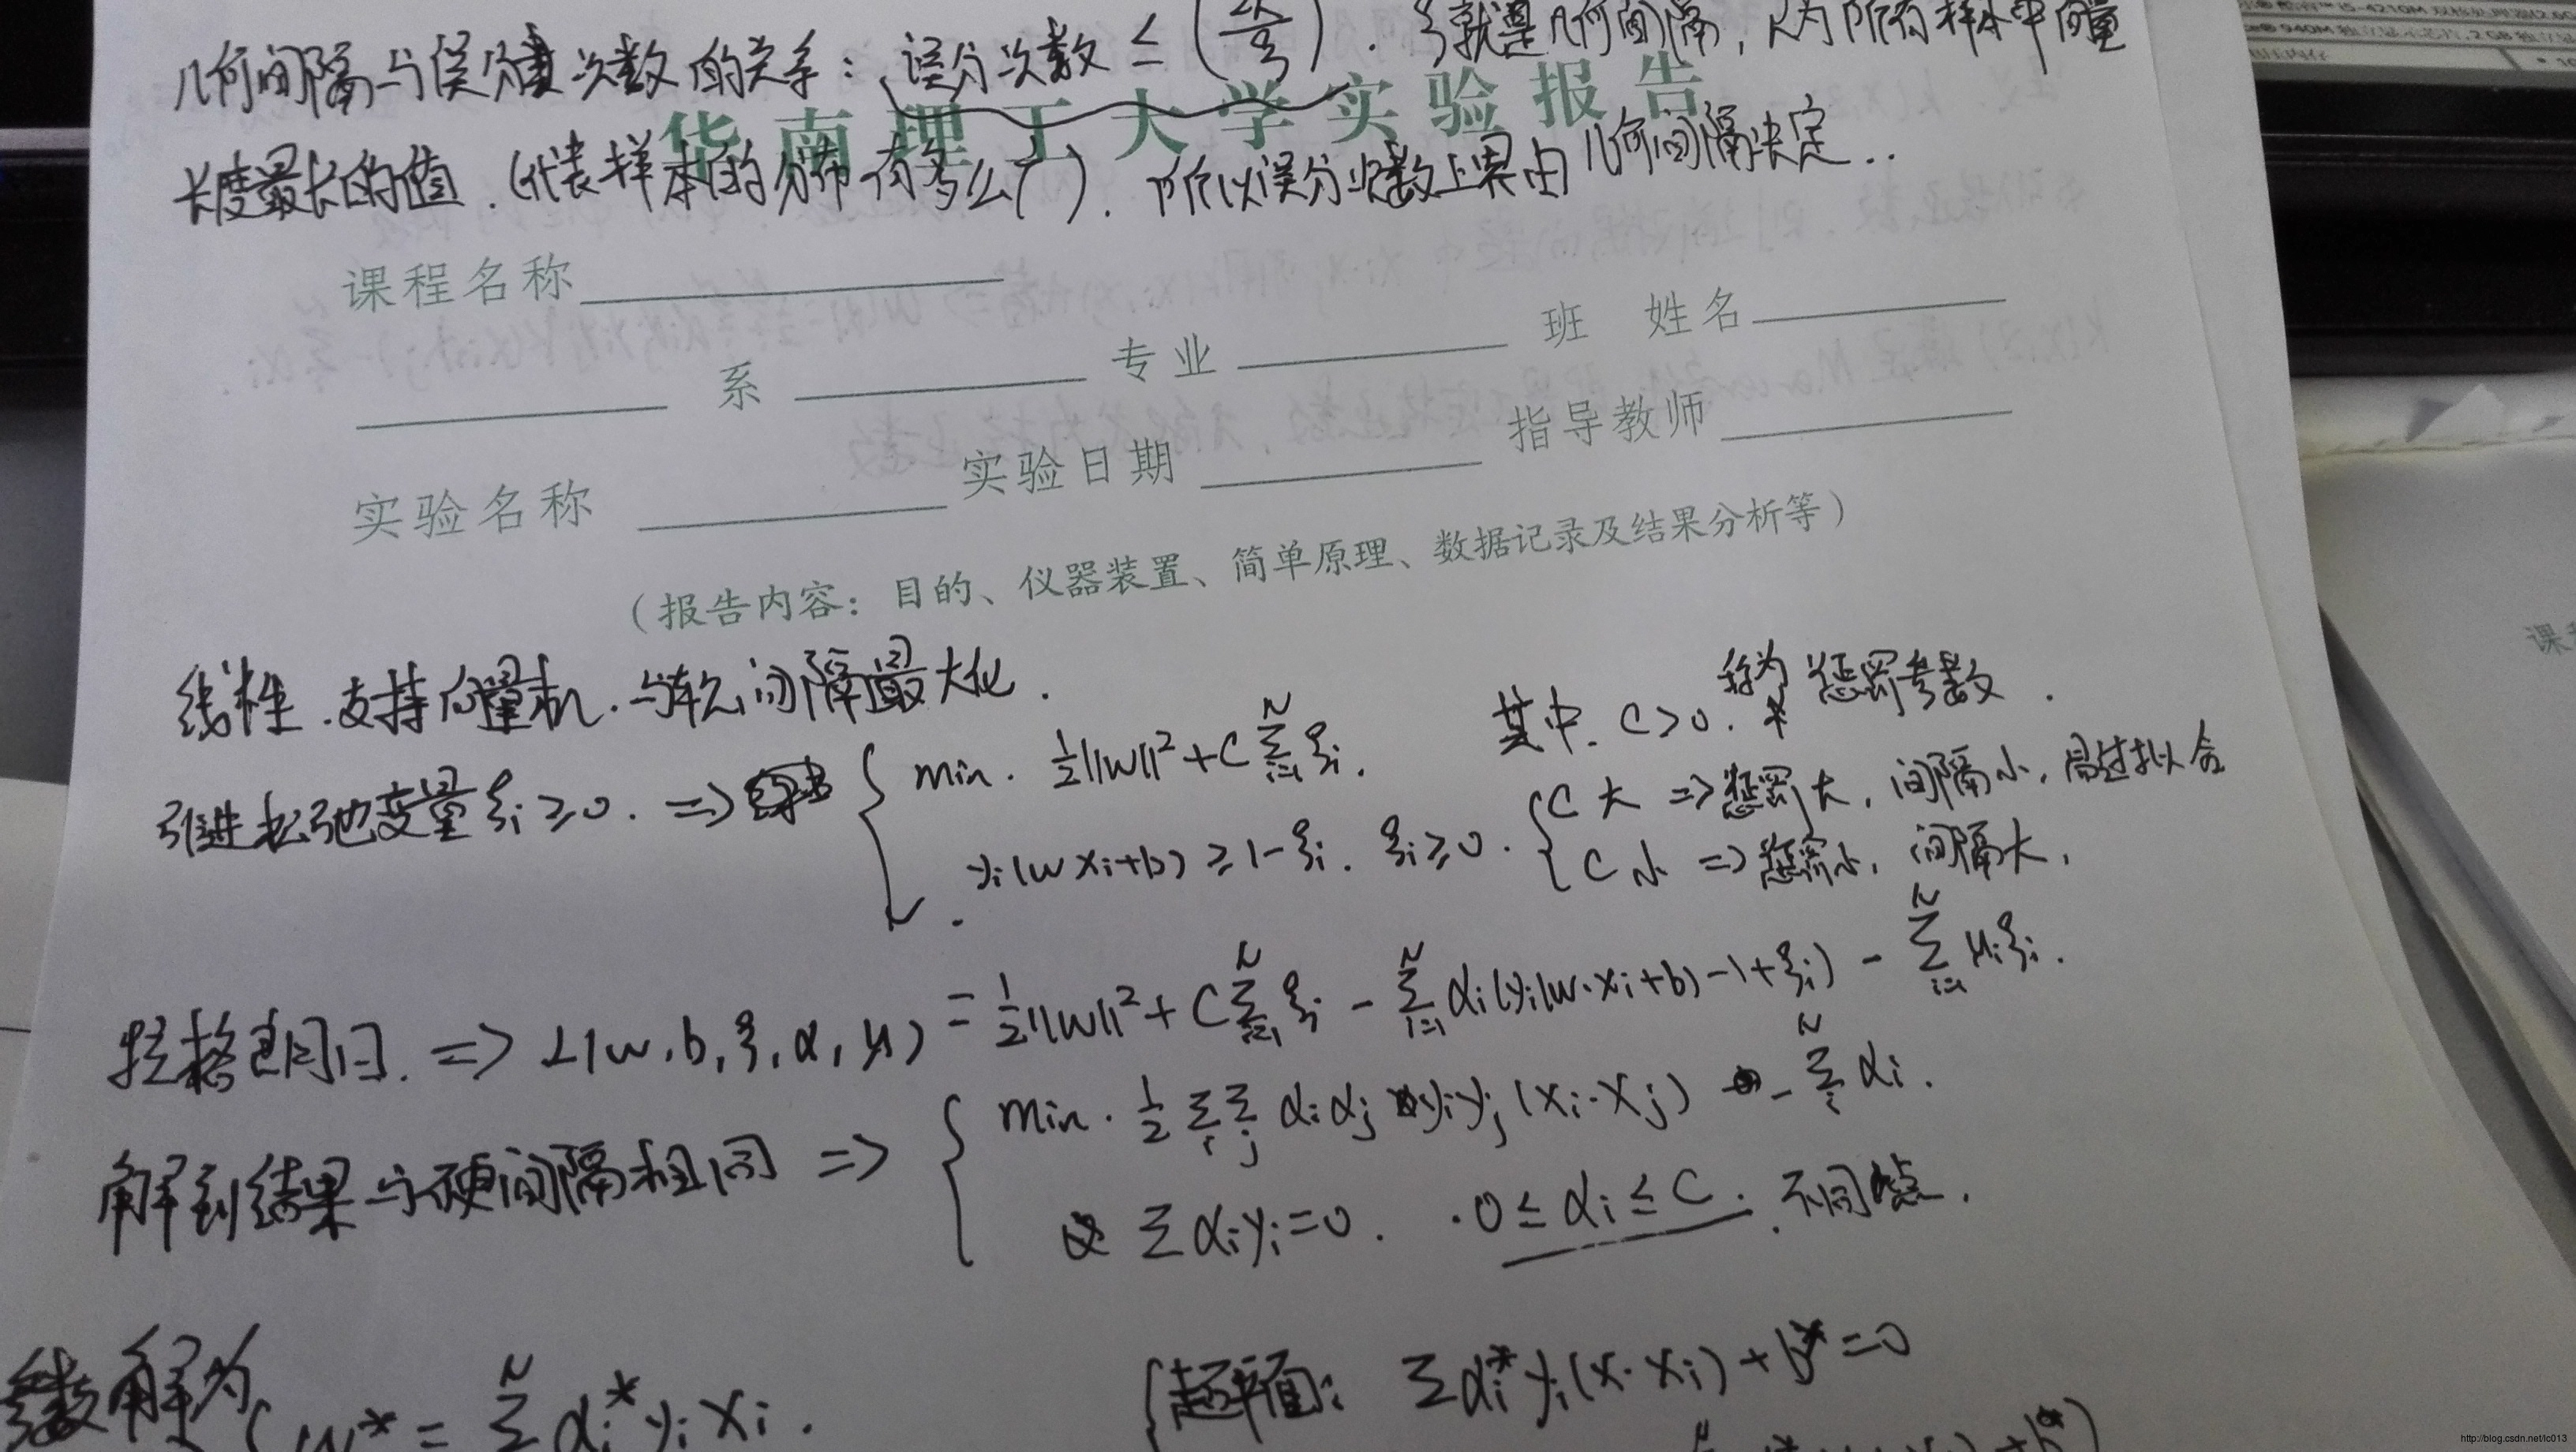 几何间隔与误分类次数的关系：误分次数 ≤ (2R/δ). δ就是几何间隔, R为所有样本中向量
华南理工大学实验报告
长度最长的值. (代表样本的分布有多么广). 所以误分次数上界由几何间隔决定..
课程名称
系 专业 班 姓名
实验名称 实验日期 指导教师
（报告内容：目的、仪器装置、简单原理、数据记录及结果分析等）
线性.支持向量机.与软间隔最大化.
其中. C>0. 称为惩罚参数.
引进松弛变量 ξi ≥ 0. => { min. ½||w||² + C Σ_{i=1}^N ξi.
yi(w xi+b) ≥ 1-ξi. ξi ≥ 0.
{ C大 => 惩罚大, 间隔小, 易过拟合
C小 => 惩罚小, 间隔大,
拉格朗日. => L(w,b,ξ,α,μ) = ½||w||² + C Σ_{i=1}^N ξi - Σ_{i=1}^N αi(yi(w·xi+b)-1+ξi) - Σ_{i=1}^N μiξi.
解到结果与硬间隔相同 => { min. ½ Σ_i Σ_j αi αj yi yj (xi·xj) - Σ_i^N αi.
Σ αi yi = 0. 0 ≤ αi ≤ C. 不同点.
解为
w* = Σ^N αi* yi xi.
{ 超平面: Σ αi* yi(x·xi) + b* = 0
http://blog.csdn.net/lc013